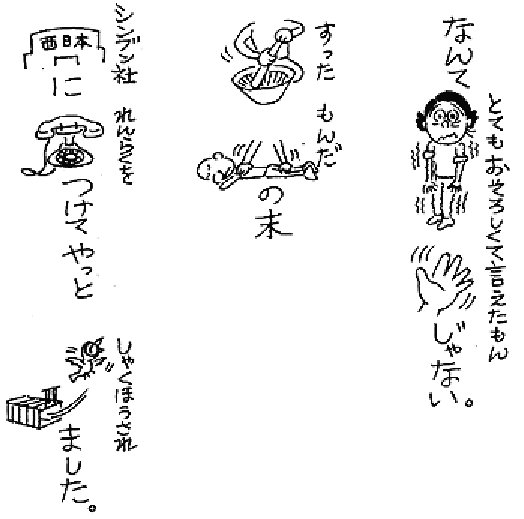 なんて
とてもおそろしくて言えたもん
じゃない。
すった もんだ
の末
シンブン社 れんらくを
西日本
に
つけて やっと
しゃくほうされ
ました。